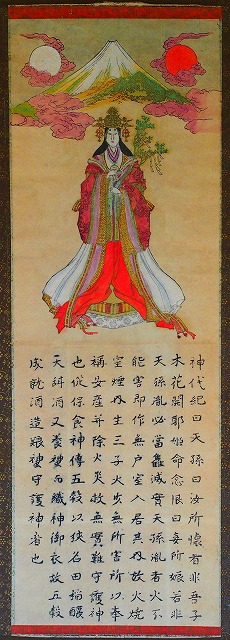 神代紀曰天孫曰汝所懐者非吾子
木花開耶姫命忿恨曰妾所娠若非
天孫胤必當滅實天孫胤者火不
能害即作無戸室入居其内放火焼
室煙生三子火無所害所以奉
稱安産并除火災救無難守護神
也従保食神傳五穀以狭名田稲醸
天酒又養而織神御衣故五穀
成就酒造守護神者也